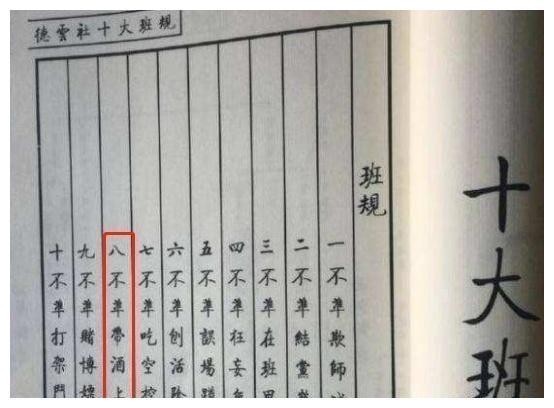 十大班
德雲社十大班規
班規
一不準欺師
二不準結黨
三不準在班
四不準狂妄
五不準誤場
六不準刨活
七不準吃空
八不準帶酒上
九不準賭博
十不準打架鬥